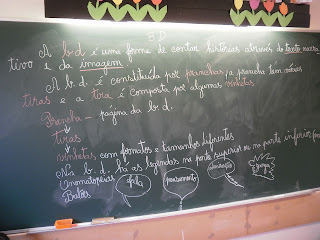 B D
A b.d. é uma forma de contar histórias através do texto narra
tivo e da imagem
A b.d. é constituída por pranchas, a prancha tem várias
tiras e a tira é composta por algumas vinhetas.
Prancha – página da b.d.
tiras
vinhetas, com formatos e tamanhos diferentes
Na b.d. há as legendas na parte superior ou na parte inferior
Onomatopeias
Balões
fala
pensamento